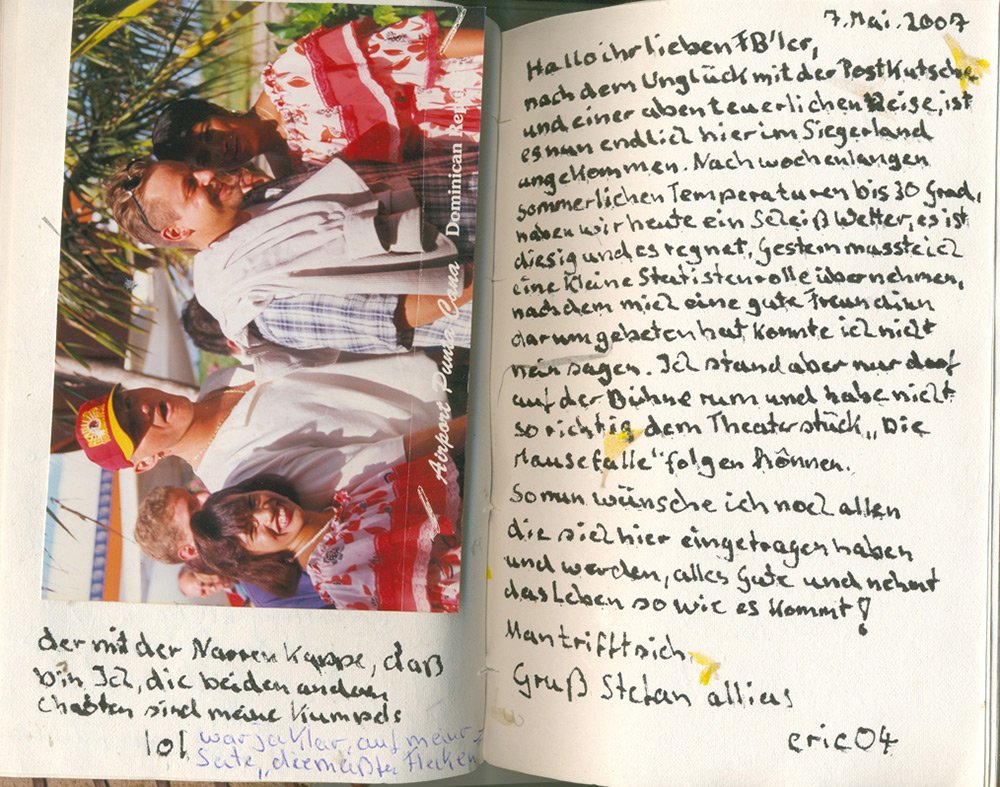 Airport Punta Cana Dominican Rep
der mit der Narren Kappe, daß
bin Ich, die beiden anderen
Chaoten sind meine Kumpels
lol
war ja klar, auf meiner
Seite
7. Mai. 2007
Hallo ihr lieben FB'ler,
nach dem Unglück mit der Postkutsche
und einer abenteuerlichen Reise, ist
es nun endlich hier im Siegerland
angekommen. Nach wochenlangen
sommerlichen Temperaturen bis 30 Grad,
haben wir heute ein Scheiß Wetter, es ist
diesig und es regnet. Gestern musste ich
eine kleine Statistenrolle übernehmen,
nachdem mich eine gute Freundinn
darum gebeten hat konnte ich nicht
nein sagen. Ich stand aber nur darf
auf der Bühne rum und habe nicht
so richtig dem Theaterstück „Die
Mausefalle" folgen können.
So nun wünsche ich noch allen
die sich hier eingetragen haben
und werden, alles Gute und nehmt
das Leben so wie es kommt!
Man trifft sich,
Gruß Stefan allias
eric04